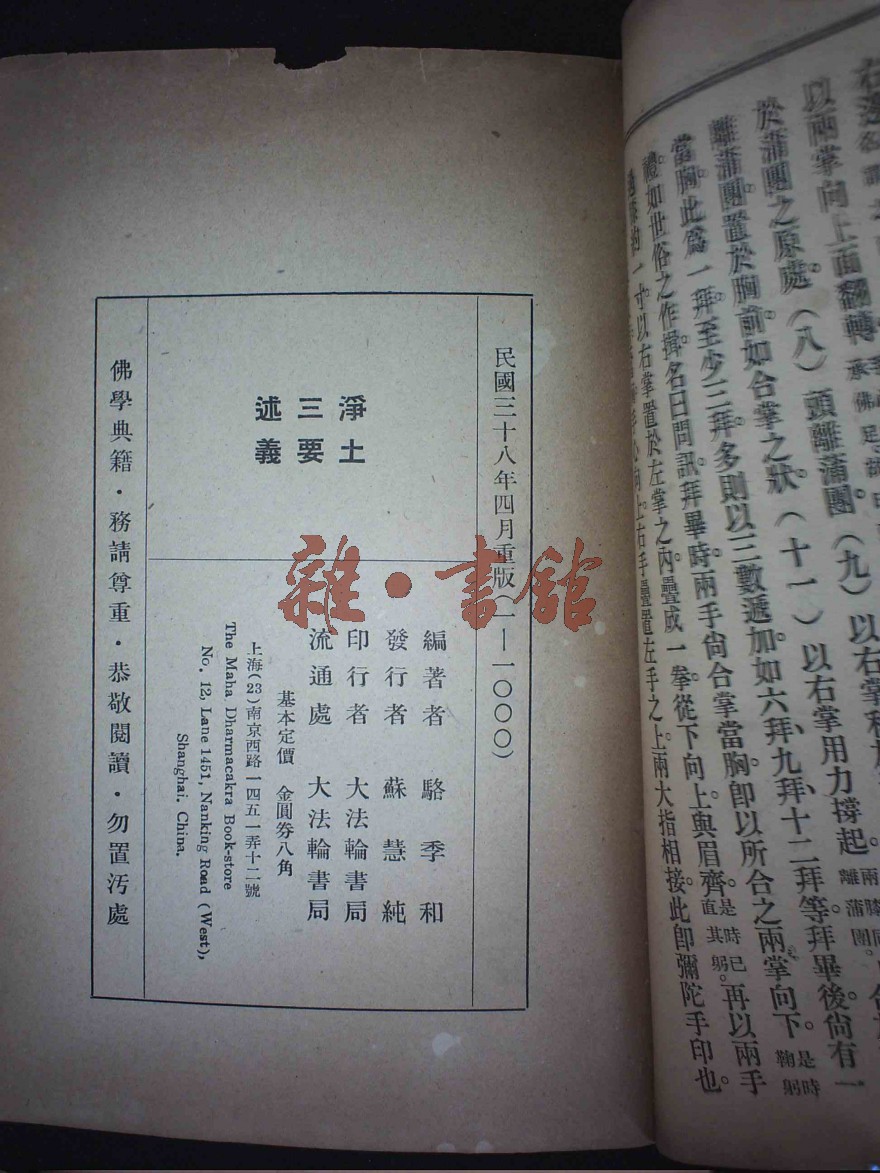 以兩掌向上面翻轉
於蒲團之原處。(八)頭離蒲團。(九)以右掌
離蒲團置於胸前如合掌之狀(十一)以右掌用力撐起。
當胸。此爲一拜。至少三拜。多則以三數遞加。如六拜、九拜、十二拜等。拜畢後。尙有一
禮。如世俗之作揖。名曰問訊。拜畢時。兩手尙合掌當胸。卽以所合之兩掌向下。是時鞠躬
一寸。以右掌置於左掌之內。疊成一拳。從下向上。與眉齊。是時已直其躬。再以兩手
右手疊置左手之上。兩大指相接。此卽彌陀手印也。
民國三十八年四月重版(一—一〇〇〇)
淨土
三要
述義
編著者 駱季和
發行者 蘇慧純
印行者 大法輪書局
流通處 大法輪書局
基本定價 金圓券八角
上海(23)南京西路一四五一弄十二號
The Maha Dharmacakra Book-store
No. 12, Lane 1451, Nanking Road (West),
Shanghai, China.
佛學典籍・務請尊重・恭敬閱讀・勿置汚處
雜・書館